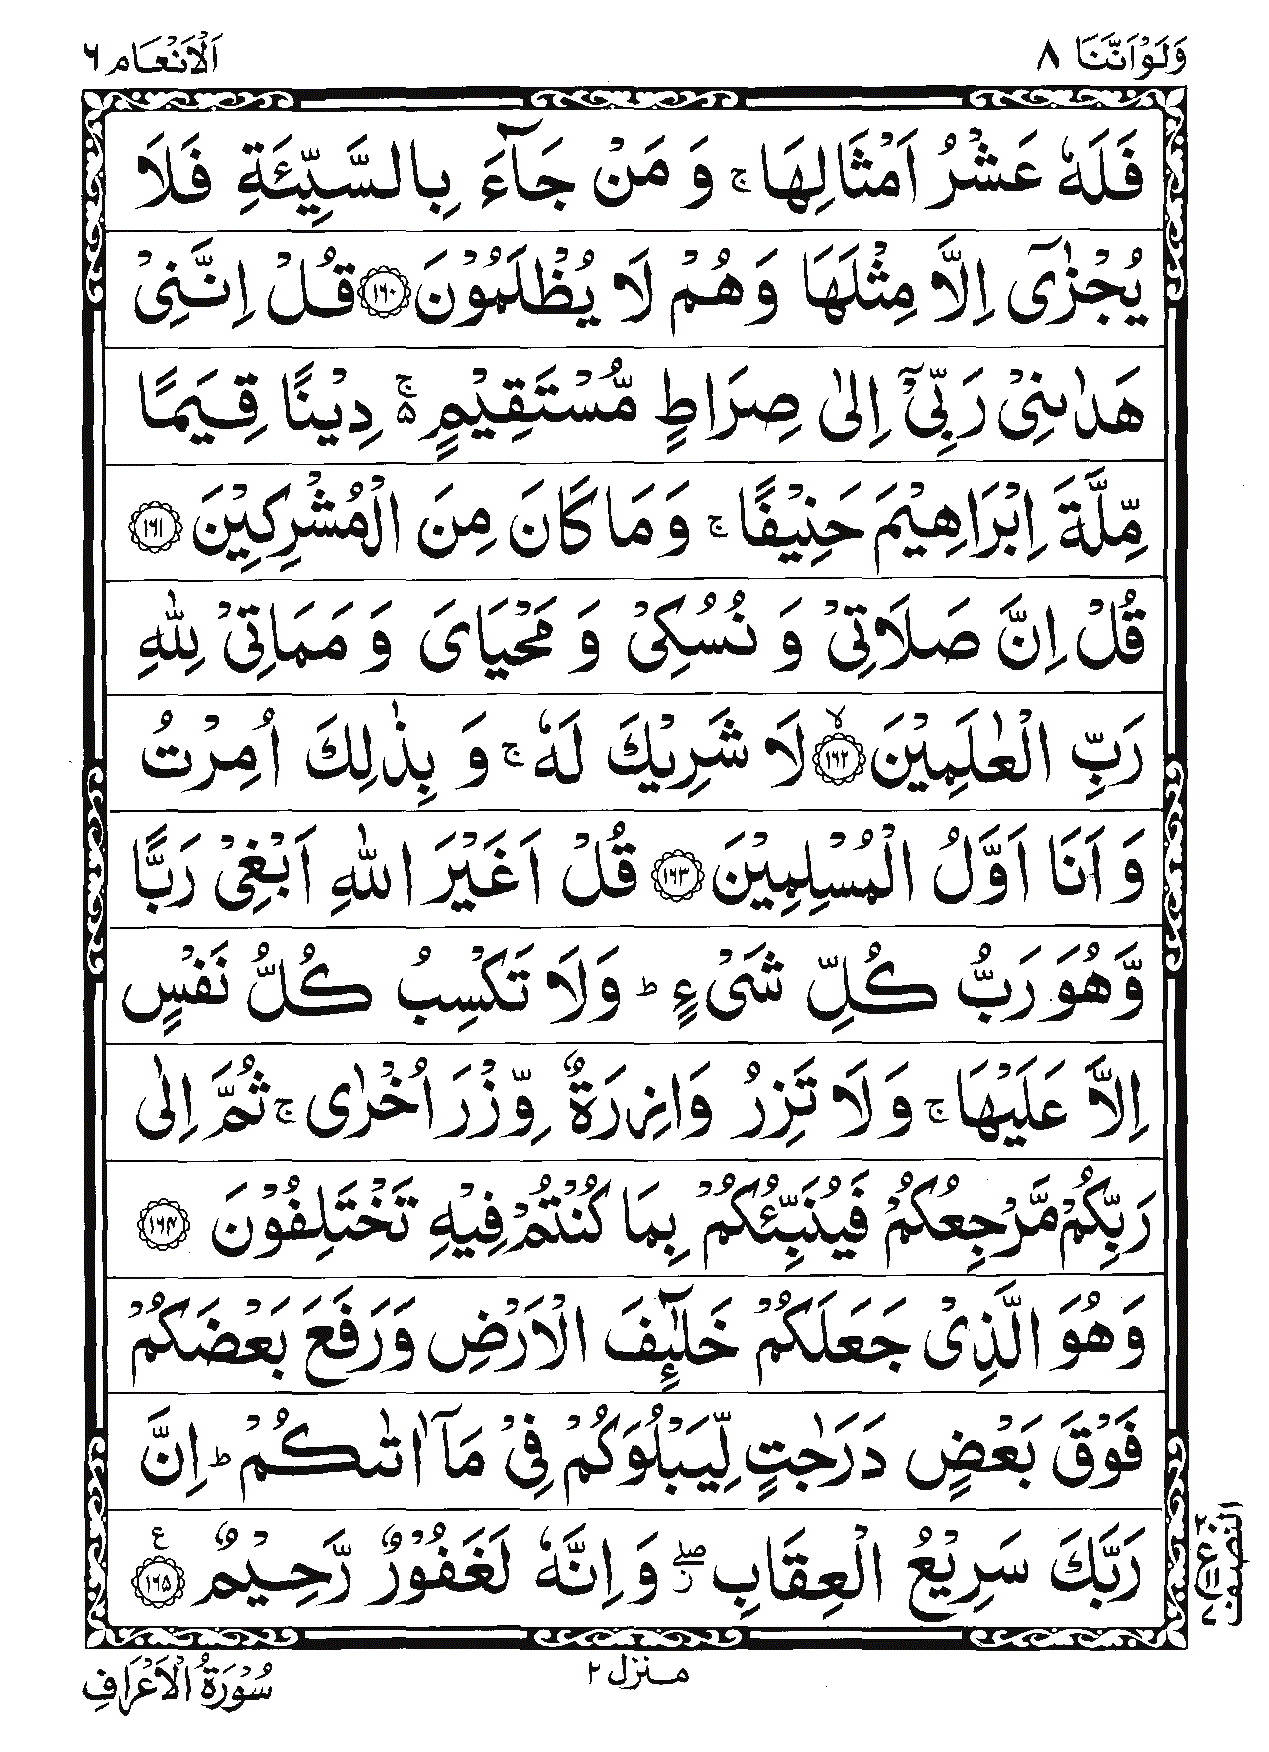 وَلَوْاَنَّنَا ٨
اَلْاَنْعَام ٦
فَلَهٗ عَشْرُ اَمْثَالِهَا ۚ وَ مَنْ جَآءَ بِالسَّيِّئَةِ فَلَا
يُجْزٰٓى اِلَّا مِثْلَهَا وَهُمْ لَا يُظْلَمُوْنَ ﴿١٦٠﴾ قُلْ اِنَّنِيْ
هَدٰىنِيْ رَبِّيْٓ اِلٰى صِرَاطٍ مُّسْتَقِيْمٍ ۚ۬ دِيْنًا قِيَمًا
مِّلَّةَ اِبْرَاهِيْمَ حَنِيْفًا ۚ وَمَا كَانَ مِنَ الْمُشْرِكِيْنَ ﴿١٦١﴾
قُلْ اِنَّ صَلَاتِيْ وَ نُسُكِيْ وَ مَحْيَايَ وَ مَمَاتِيْ لِلّٰهِ
رَبِّ الْعٰلَمِيْنَ ﴿١٦٢﴾ۙ لَا شَرِيْكَ لَهٗ ۚ وَ بِذٰلِكَ اُمِرْتُ
وَ اَنَا اَوَّلُ الْمُسْلِمِيْنَ ﴿١٦٣﴾ قُلْ اَغَيْرَ اللّٰهِ اَبْغِيْ رَبًّا
وَّهُوَ رَبُّ كُلِّ شَيْءٍ ؕ وَلَا تَكْسِبُ كُلُّ نَفْسٍ
اِلَّا عَلَيْهَا ۚ وَلَا تَزِرُ وَازِرَةٌ وِّزْرَ اُخْرٰى ۚ ثُمَّ اِلٰى
رَبِّكُمْ مَّرْجِعُكُمْ فَيُنَبِّئُكُمْ بِمَا كُنْتُمْ فِيْهِ تَخْتَلِفُوْنَ ﴿١٦٤﴾
وَهُوَ الَّذِيْ جَعَلَكُمْ خَلٰٓئِفَ الْاَرْضِ وَرَفَعَ بَعْضَكُمْ
فَوْقَ بَعْضٍ دَرَجٰتٍ لِّيَبْلُوَكُمْ فِيْ مَآ اٰتٰىكُمْ ؕ اِنَّ
رَبَّكَ سَرِيْعُ الْعِقَابِ ۖ ز وَاِنَّهٗ لَغَفُوْرٌ رَّحِيْمٌ ﴿١٦٥﴾ ع
النصف
٢ ع ١١ ٧
منزل ٢
سُوْرَةُ الْاَعْرَافِ